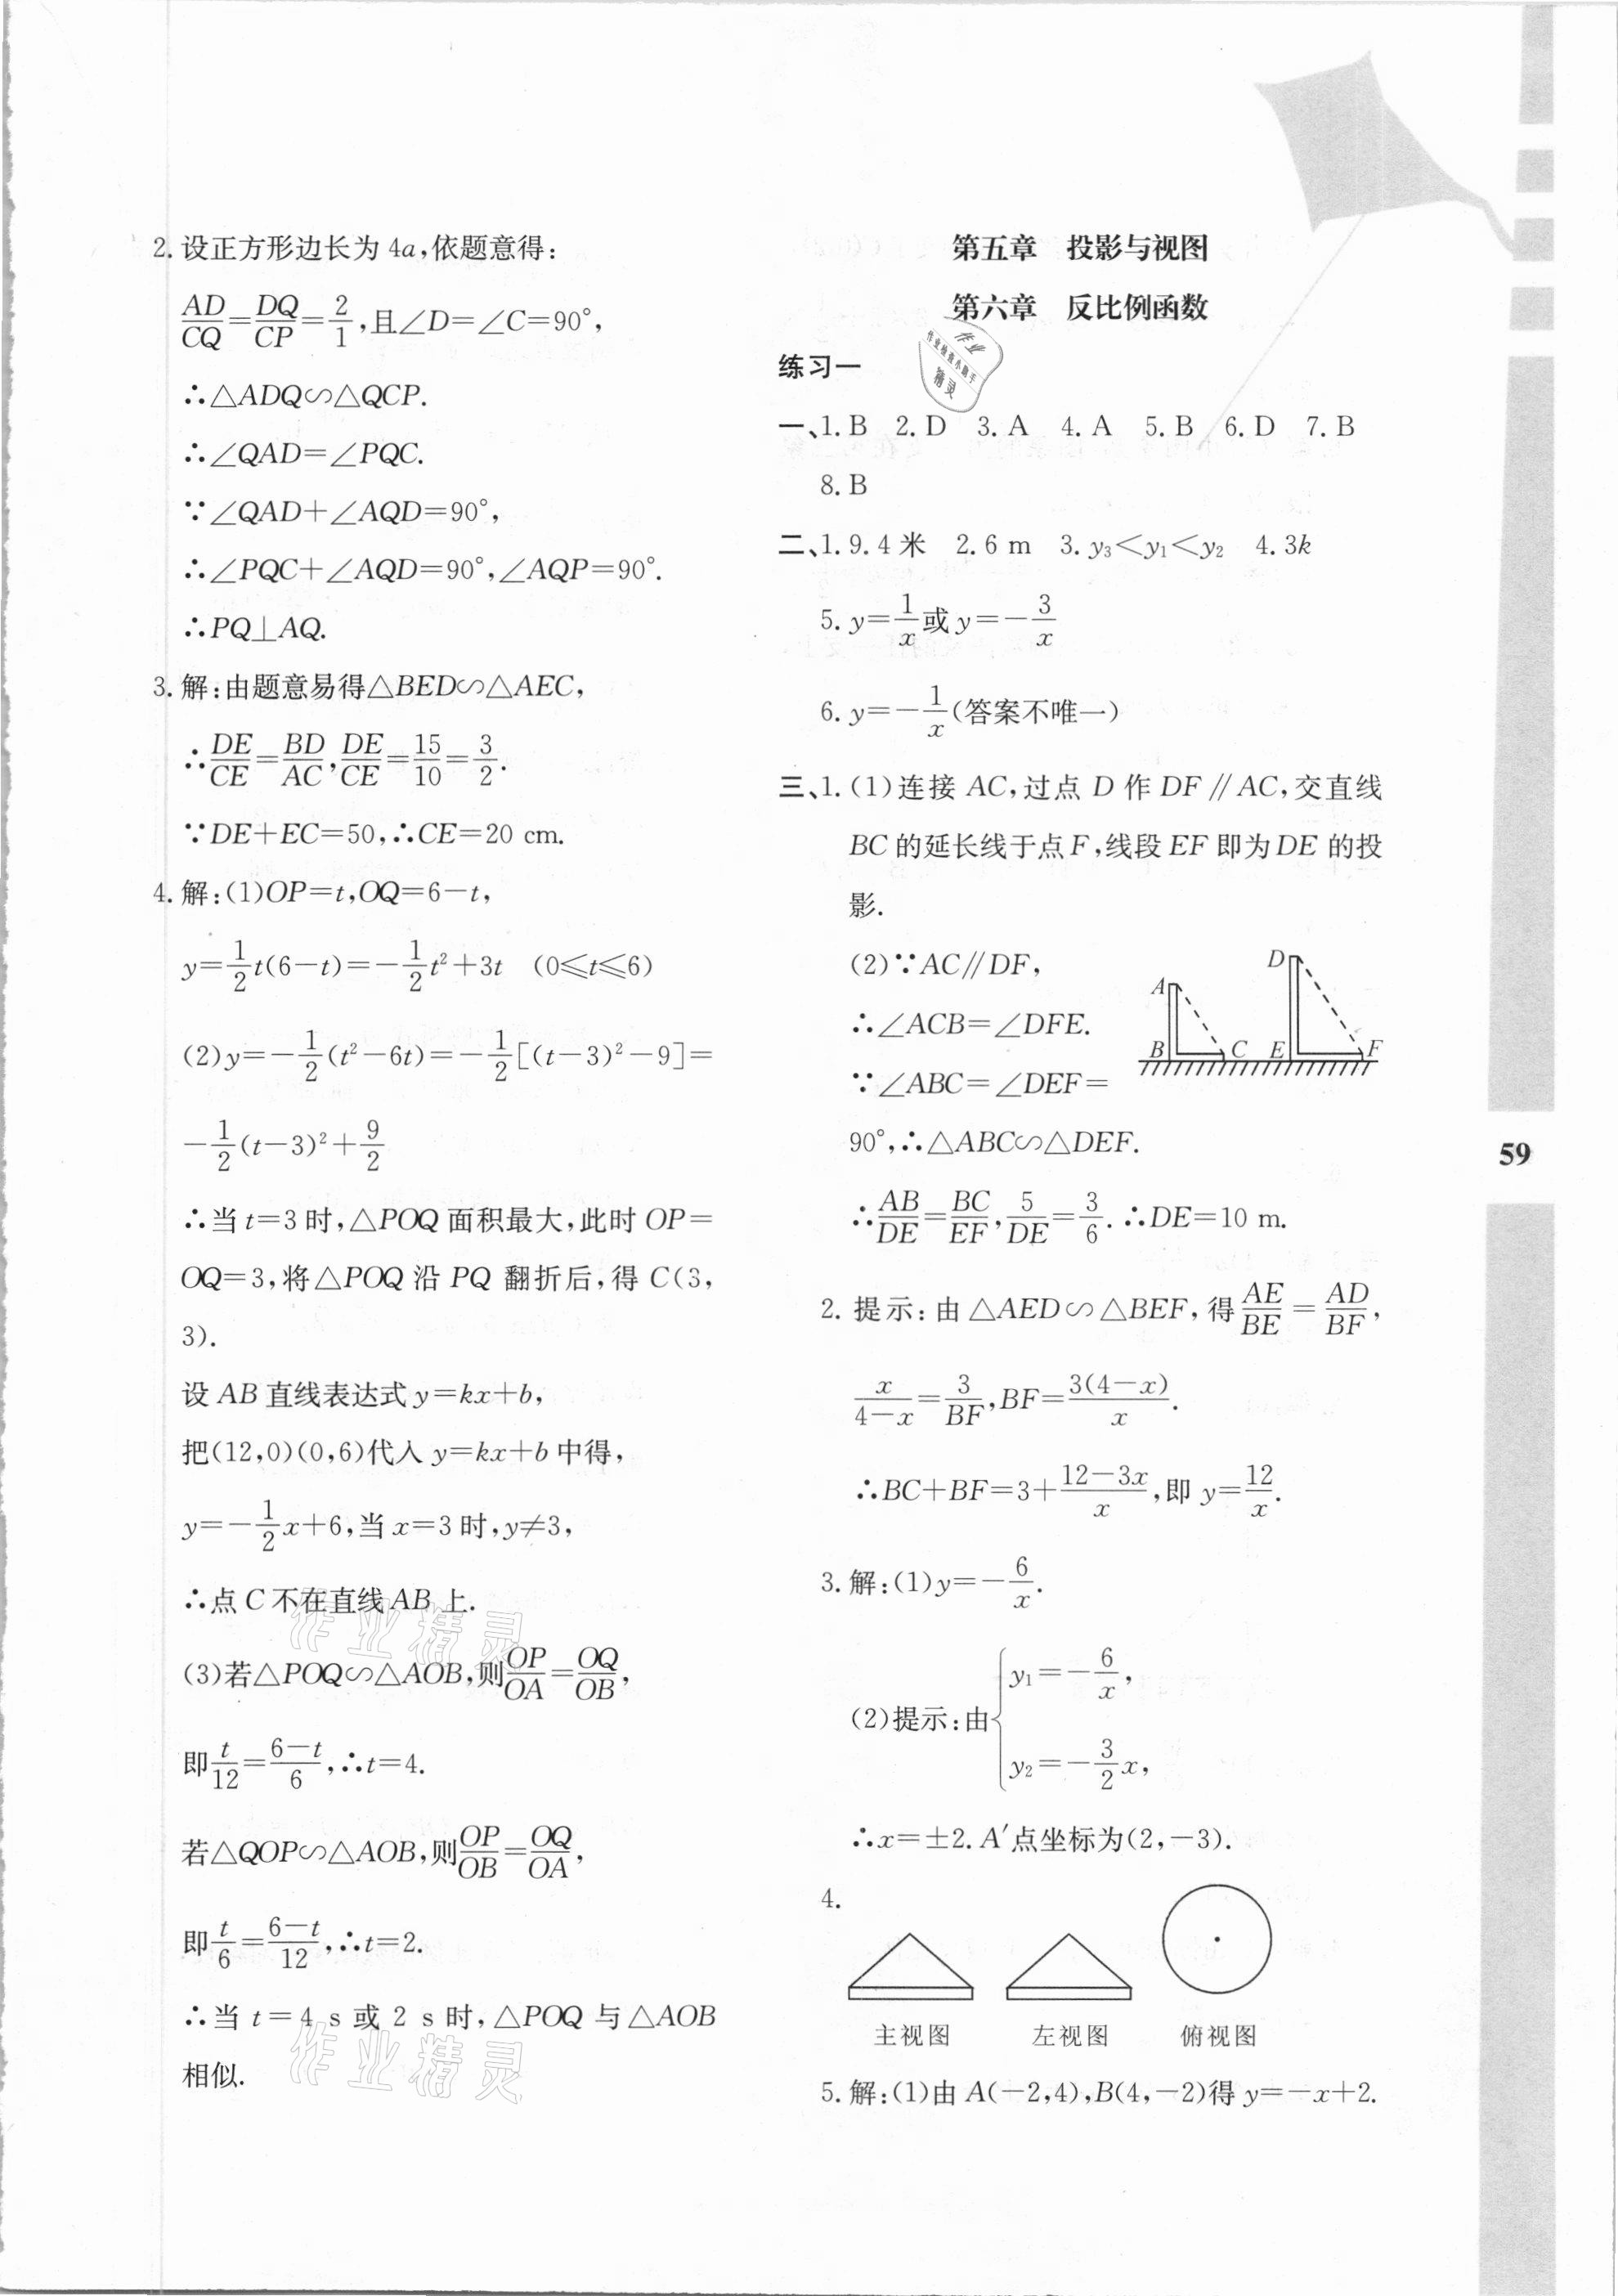 2. 设正方形边长为 4a,依题意得:
AD/CQ=DQ/CP=2/1,且∠D=∠C=90°,
∴△ADQ∽△QCP.
∴∠QAD=∠PQC.
∵∠QAD+∠AQD=90°,
∴∠PQC+∠AQD=90°,∠AQP=90°.
∴PQ⊥AQ.
3. 解:由题意易得△BED∽△AEC,
∴DE/CE=BD/AC,DE/CE=15/10=3/2.
∵DE+EC=50,∴CE=20 cm.
4. 解:(1)OP=t,OQ=6-t,
y=1/2t(6-t)=-1/2t²+3t (0≤t≤6)
(2)y=-1/2(t²-6t)=-1/2[(t-3)²-9]=
-1/2(t-3)²+9/2
∴当 t=3 时,△POQ 面积最大,此时 OP=
OQ=3,将△POQ 沿 PQ 翻折后,得 C(3,
3).
设 AB 直线表达式 y=kx+b,
把(12,0)(0,6)代入 y=kx+b 中得,
y=-1/2x+6,当 x=3 时,y≠3,
∴点 C 不在直线 AB 上.
(3)若△POQ∽△AOB,则OP/OA=OQ/OB,
即t/12=(6-t)/6,∴t=4.
若△QOP∽△AOB,则OP/OB=OQ/OA,
即t/6=(6-t)/12,∴t=2.
∴当 t=4 s 或 2 s 时,△POQ 与△AOB
相似.
第五章 投影与视图
第六章 反比例函数
练习一
一、1. B 2. D 3. A 4. A 5. B 6. D 7. B
8. B
二、1. 9.4 米 2. 6 m 3. y₃<y₁<y₂ 4. 3k
5. y=1/x或 y=-3/x
6. y=-1/x(答案不唯一)
三、1. (1)连接 AC,过点 D 作 DF∥AC,交直线
BC 的延长线于点 F,线段 EF 即为 DE 的投
影.
(2)∵AC∥DF,
∴∠ACB=∠DFE.
∵∠ABC=∠DEF=
90°,∴△ABC∽△DEF.
A
B
C
D
E
F
∴AB/DE=BC/EF,5/DE=3/6.∴DE=10 m.
2. 提示:由△AED∽△BEF,得AE/BE=AD/BF,
x/(4-x)=3/BF,BF=3(4-x)/x.
∴BC+BF=3+(12-3x)/x,即 y=12/x.
3. 解:(1)y=-6/x.
(2)提示:由{y₁=-6/x,
y₂=-3/2x,
∴x=±2. A′点坐标为(2,-3).
4.
主视图 左视图 俯视图
5. 解:(1)由 A(-2,4),B(4,-2)得 y=-x+2.
59
作业
作业检查小助手
精灵
作业精灵
作业精灵